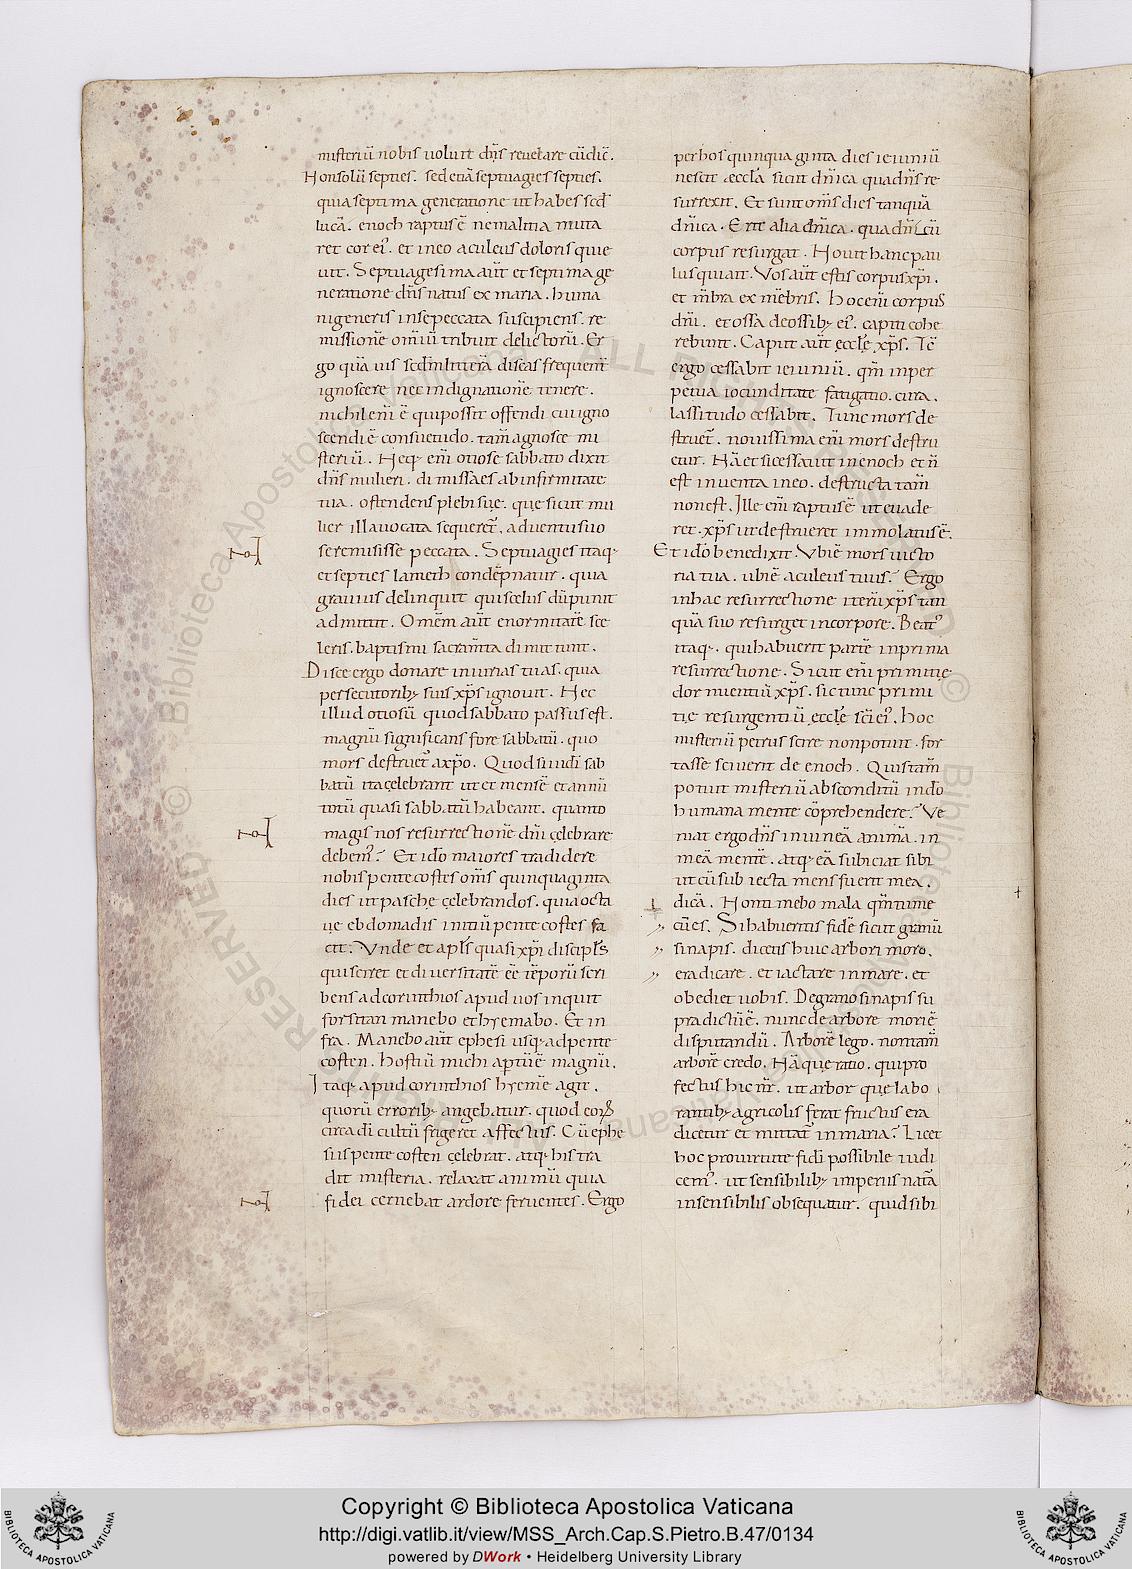 misteriū nobis uoluit dn̄s reuelare cū dic̄.
Non solū septies. sed etiā septuagies septies.
quia septima generatione ut habes scd̄
lucā. enoch raptus ē ne malitia muta
ret cor ei᷒. et in eo aculeus doloris quie
uit. Septuagesima aūt et septima ge
neratione dn̄s natus ex maria. huma
ni generis in se peccata suscipiens. re
missionē om̄iū tribuit delictorū. Er
go quā uis scdm̄ litterā discas frequent̄
ignoscere nec indignationē tenere.
nichil em̄ ē qui possit offendi cui igno
scendi ē consuetudo. tam̄ agnosce mi
steriū. Neq; em̄ otiose sabbato dixit
dn̄s mulieri. dimissa es ab infirmitate
tua. ostendens plebi suę. quę sicut mu
lier illa uocata sequeret̄. aduentu suo
se remisisse peccata. Septuagies itaq;
et septies lamech condēpnatur. quia
grauius delinquit qui scelus dū punit
admittit. Omēm aūt enormitatē sce
leris. baptismi sacram̄ta dimittunt.
Disce ergo donare iniurias tuas. quia
persecutorib; suis xp̄s ignouit. Nec
illud otiosū quod sabbato passus est.
magnū significans fore sabbatū. quo
mors destruet᷒ a xp̄o. Quod si iudi sab
batū ita cęlebrant ut et mensē et annū
totū quasi sabbatū habeant. quanto
magis nos resurrectionē dn̄i cęlebrare
debem᷒? Et idō maiores tradidere
nobis pentecostes om̄s quinquaginta
dies ut paschę cęlebrandos. quia octa
uę ebdomadis initiū pentecostes fa
cit. Vnde et apl̄s quasi xp̄i discipl̄s
qui sciret et diuersitatē eē tēporū scri
bens ad corinthios apud uos inquit
forsitan manebo et hyemabo. Et in
fra. Manebo aūt ephesi usq; ad pente
costen. hostiū michi aptū ē magnū.
Itaq; apud corinthios hyemē agit.
quorū errorib; angebatur. quod eor̄
circa di cultū frigeret affectus. Cū ephe
siis pentecosten cęlebrat. atq; his tra
dit misteria. relaxat animū quia
fidei cernebat ardore feruentes. Ergo
per hos quinquaginta dies ieiuniū
nescit ęccl̄a sicut dn̄ica qua dn̄s re
surrexit. Et sunt om̄s dies tanquā
dn̄ica. Erit alia dn̄ica. qua dn̄i cū
corpus resurgat. Nouit hanc pau
lus qui ait. Vos aūt estis corpus xp̄i.
et m̄bra ex mēbris. Hoc em̄ corpus
dn̄i. et ossa de ossib; ei᷒. capiti cohe
rebunt. Caput aūt ęccl̄ę xp̄s. Tc̄
ergo cessabit ieiuniū. qm̄ in per
petua iocunditate fatigatio. cura.
lassitudo cessabit. Tunc mors de
struet᷒. nouissima em̄ mors destru
etur. Nā et si cessauit in enoch et n̄
est inuenta in eo. destructa tam̄
non est. Ille em̄ raptus ē ut euade
ret. xp̄s ut destrueret immolatus ē.
Et idō benedixit. Vbi ē mors uicto
ria tua. ubi ē aculeus tuus? Ergo
in hac resurrectione iterū xp̄s tan
quā suo resurget in corpore. Beat᷒
itaq;. qui habuerit partē in prima
resurrectione. Sicut em̄ primitię
dormientiū xp̄s. sic tunc primi
tię resurgentiū ęccl̄ę sc̄ę ei᷒. hoc
misteriū petrus scire non potuit. for
tasse sciuerit de enoch. Quis tam̄
potuit misteriū absconditū in dō
humana mente cōprehendere? Ve
niat ergo dn̄s in uineā animā. in
meā mentē. atq; eā subiciat sibi
ut cū subiecta mens fuerit mea.
dicā. Non timebo mala qm̄ tu me
cū es. Si habueritis fidē sicut granū
sinapis. dicetis huic arbori moro.
eradicare. et iactare in mare. et
obediet uobis. De grano sinapis su
pra dictū ē. nunc de arbore mori ē
disputandū. Arborē lego. non tam̄
arborē credo. Nā quę ratio. qui pro
fectus hic nr̄. ut arbor quę labo
rantib; agricolis ferat fructus era
dicetur et mittat᷒ in maria? Licet
hoc pro uirtute fidi possibile iudi
cem᷒. ut sensibilib; imperiis natā
insensibilis obsequatur. quid sibi
© Biblioteca Apostolica Vaticana ALL RIGHTS RESERVED
Copyright © Biblioteca Apostolica Vaticana
http://digi.vatlib.it/view/MSS_Arch.Cap.S.Pietro.B.47/0134
powered by DWork • Heidelberg University Library
BIBLIOTECA APOSTOLICA VATICANA
BIBLIOTECA APOSTOLICA VATICANA